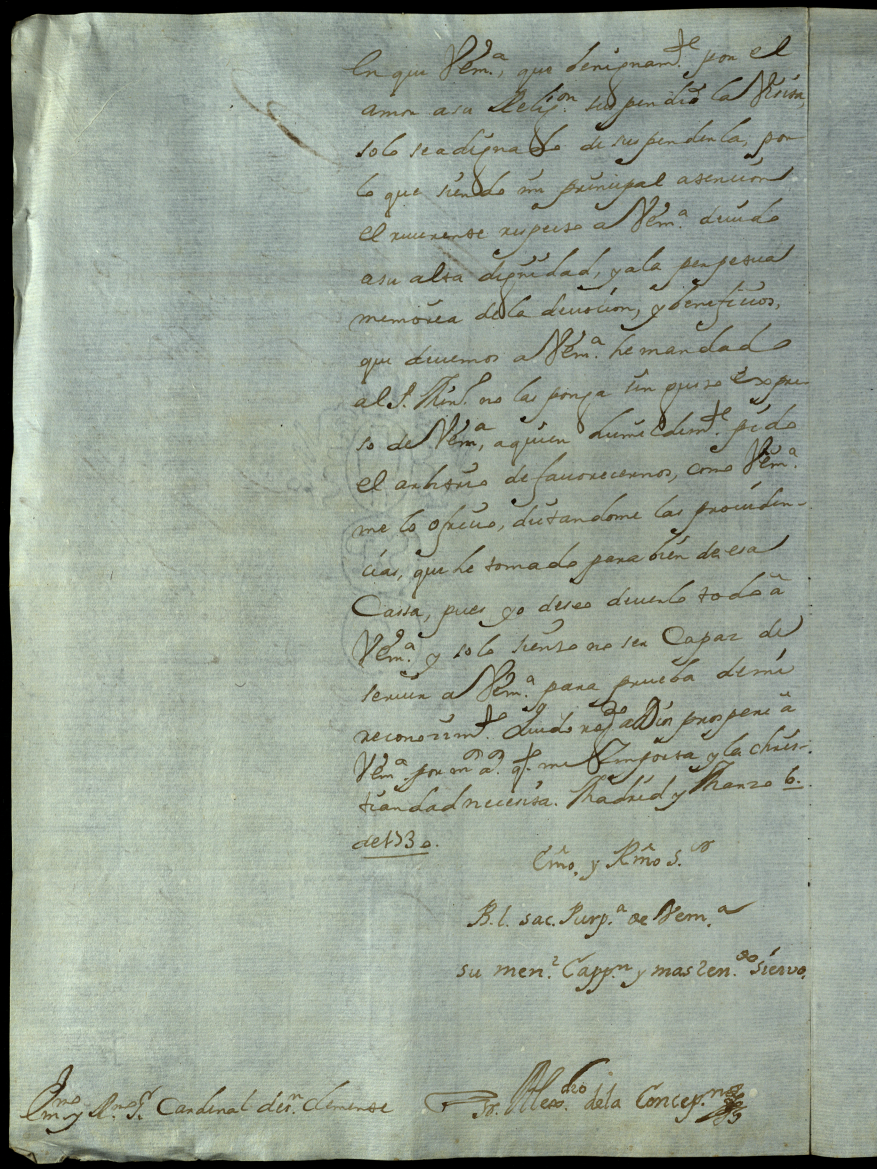 en que Vem.ª, que benignam.te por el
amor a su Relig.on suspendio la Visita,
solo se a dignado de suspenderla, por
lo que siendo mi principal atencion
el reuerente respeto a Vem.ª deuido
a su alta dignidad, y a la perpetua
memoria de la deuocion, y beneficios,
que deuemos a Vem.ª he mandado
al P. Min.º no las ponga sin gusto expre-
so de Vem.ª, a quien humildem.te pido
el arbitrio de fauorecernos, como Vem.ª
me lo ofrece, dictandome las prouiden-
cias, que he tomado para bien de esa
Cassa, pues yo deseo deuerlo todo â
Vem.ª y solo siento no ser Capaz de
seruir a Vem.ª para prueba de mi
reconozim.to. Quedo rog.do a Dios prospere â
Vem.ª por m.s a.s q.e me Importa y la chris-
tiandad necesita. Madrid y Marzo 6.
de 1730.
Em̃o. y Rm̃o S.or
B. l. sac. Purp.ª de Vem.ª
su men.r Capp.n y mas ren.do sieruo,
Em.mo y R.mo S.r Cardenal de s.n Clemente
Fr. Alex.dro de la Concep.n